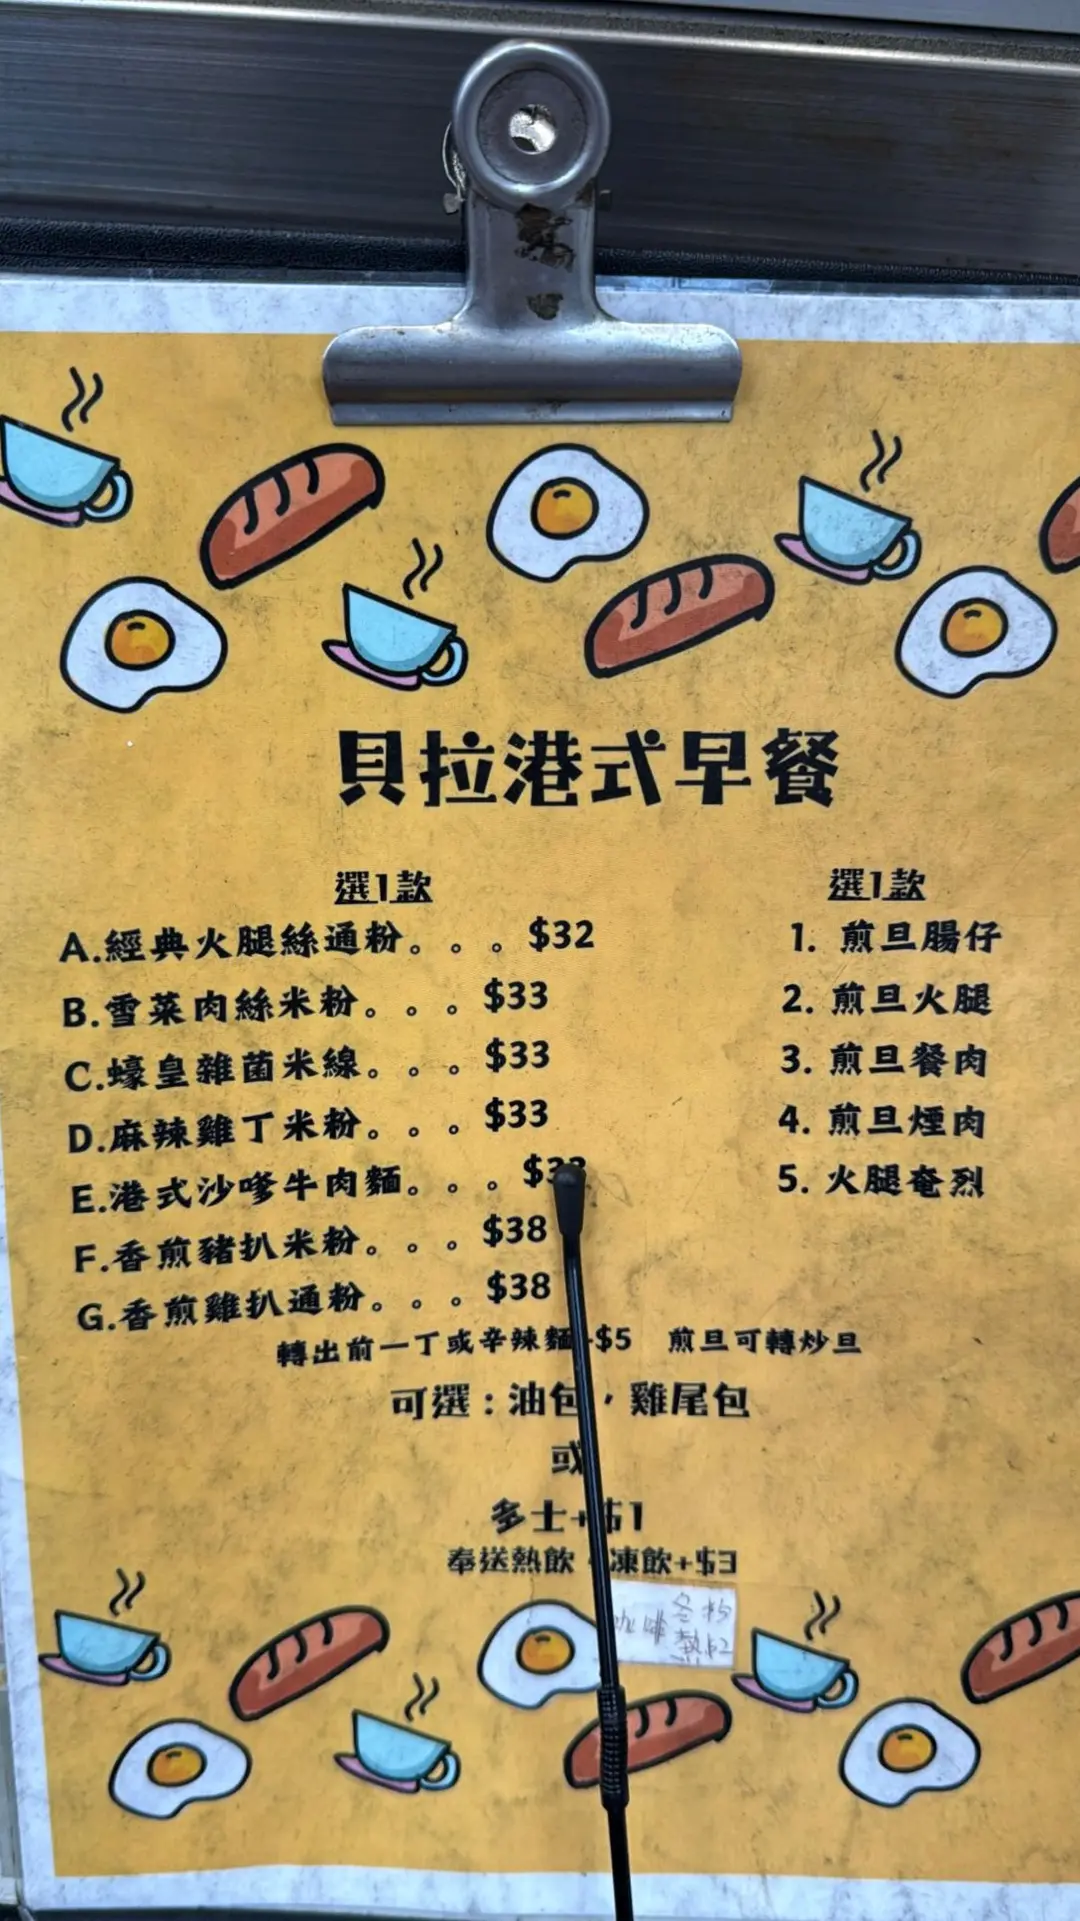 貝拉港式早餐
選1款
A.經典火腿絲通粉。。。$32
B.雪菜肉絲米粉。。。$33
C.蠔皇雜菌米線。。。$33
D.麻辣雞丁米粉。。。$33
E.港式沙嗲牛肉麵。。。$33
F.香煎豬扒米粉。。。$38
G.香煎雞扒通粉。。。$38
選1款
1. 煎旦腸仔
2. 煎旦火腿
3. 煎旦餐肉
4. 煎旦煙肉
5. 火腿奄烈
轉出前一丁或辛辣麵+$5 煎旦可轉炒旦
可選:油包,雞尾包
或
多士+$1
奉送熱飲 凍飲+$3
咖啡